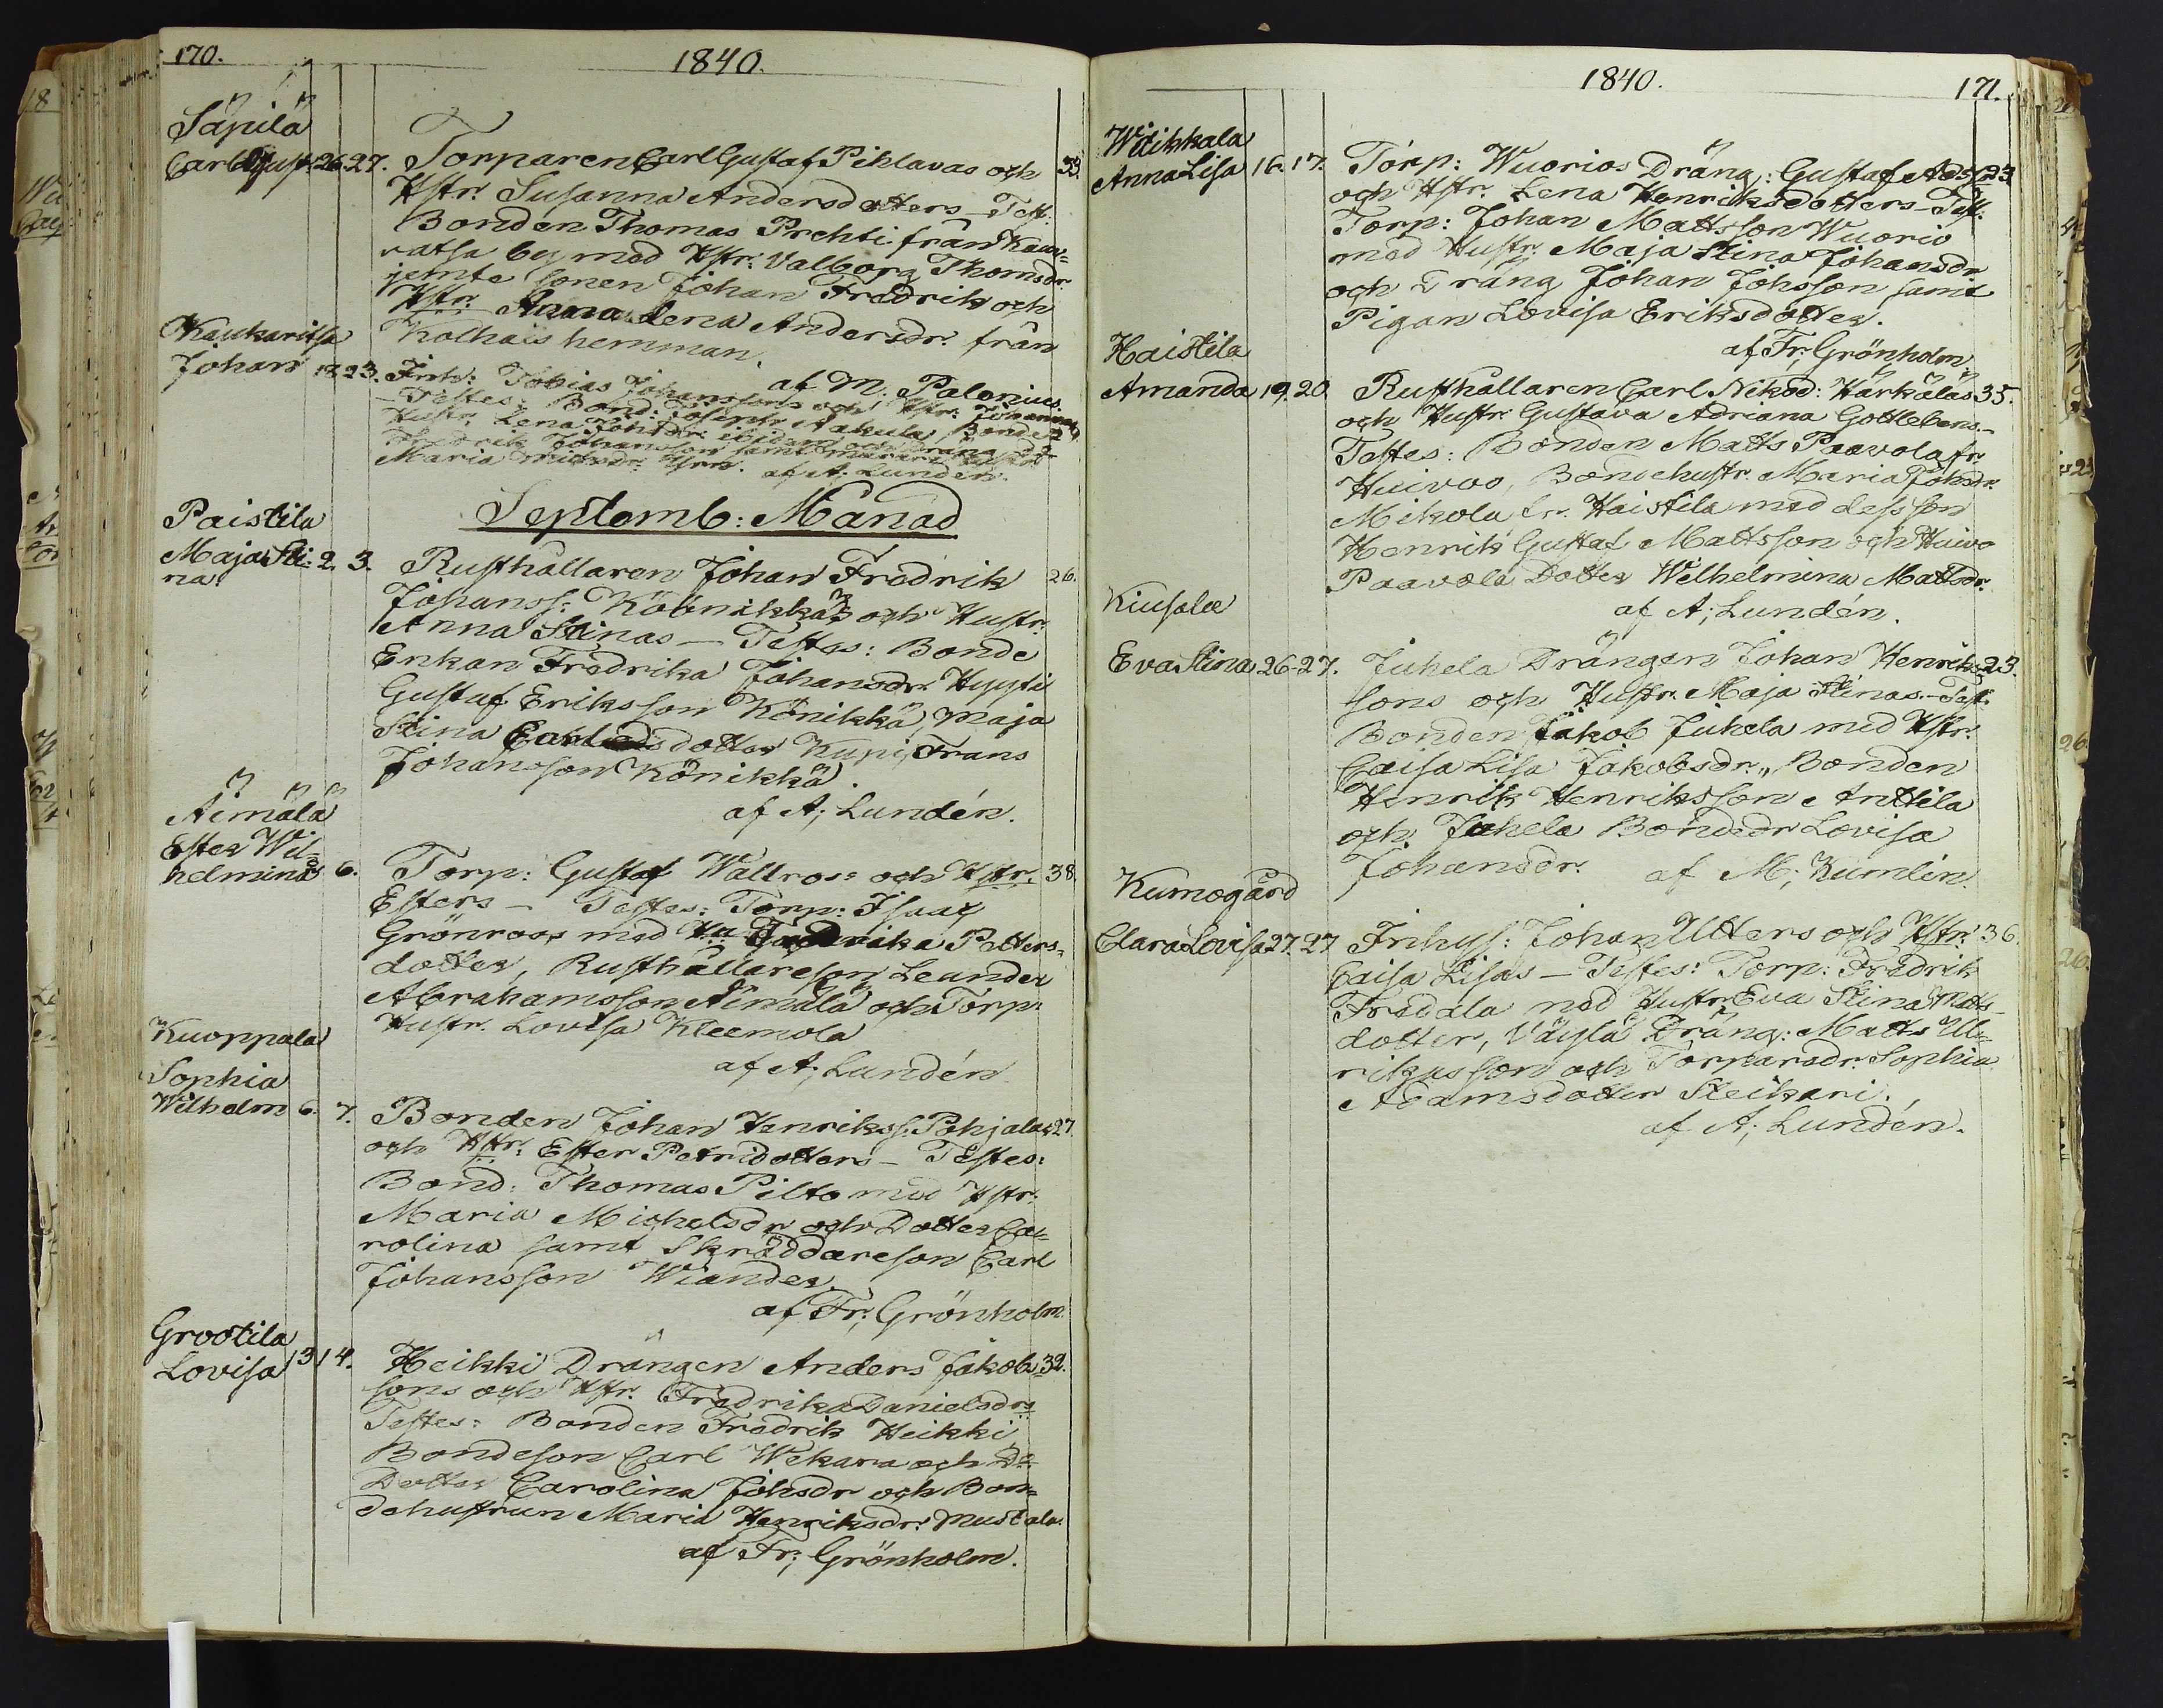 170.
1840.
Säpilä
Carl Gust: 26. 27. Torparen Carl Gustaf Pihlavas och 33.
Hstr. Susanna Andersdotters – Test:
Bonden Thomas Prehti från Kau=
vatsa by med Hstr: Valborg Thomsdr.
jemte sonen Johan Fredrik och
Hstr. Anna Lena Andersdr. från
Kolhais hemman.
af M. Polonius.
Kaukaritsa
Johan 23. Inh: Tobias Johanssons och Hstr: Johanna
Testes: Bond: Josephr Aakula, Bonde
Hustr. Lena Johsdr. ibidem och dräng
Fredrik Johansson samt
Maria af A. Lundén.
Septemb: Månad
Paistila
Maja Sti= 2. 3. Rusthållaren Johan Fredrik 26.
na
Johanss: Köönikkäs och Hustr.
Anna Stinas – Testes: Bonde
Enkan Fredrika Johansdr. Hyysti
Gustaf Eriksson Könikkä, Maja
Stina Carlsdotter Kupi, Frans
Johansson Könikkä.
af A; Lundén.
Äimälä
Ester Wil=
helmina 6. Torp: Gustaf Wallros: och Hstr: 38.
Esters – Testes: Torp: Isaac
Grönroos med Hu Fredrika Petters=
dotter, Rusthållareson Leander
Abrahamsson Äimälä och Torp:
Hustr. Lovisa Kleemola
af A; Lundén.
Kuoppala
Sophia
Wilhelm 6. 7. Bonden Johan Henrikss: Pohjalas 27.
och Hstr: Ester Petridotters – Testes:
Bond: Thomas Pilto med Hstr:
Maria Michelsdr och Dotter Ca=
rolina samt Skräddareson Carl
Johansson Wiander.
af Fr; Grönholm.
Grootila
Lovisa 13 14. Heikki Drängen Anders Jakobs 32.
sons och Hstr. Fredrika Danielsdrs
Testes: Bonden Fredrik Heikki
Bondeson Carl Wekara och Do:
Dotter Carolina Johsdr och Bon=
dehustrun Maria Henriksdr. Mustala.
af Fr; Grönholm.
1840.
171.
Wiikkala
Anna Lisa 16. 17. Torp: Wuorios Dräng: Gustaf Ads 23.
och Hstr. Lena Henriksdotters – Test.
Torp: Johan Mattsson Wuorio
med Hustr: Maja Stina Johansdr.
och Dräng Johan Johsson samt
Pigan Lovisa Eriksdotter.
af Fr; Grönholm
Haistila
Amanda 19. 20. Rusthållaren Carl Nikod: Härkäläs 35.
och Hustr: Gustava Adriana Gottlebens –
Testes: Bonden Matts Paavola fr.
Huivoo, Bondehustr. Maria Johsdr.
Mikola fr. Haistila med dess son
Henrik Gustaf Mattsson och Huivo
Paavola Dotter Welhelmina Mattsdr.
af A; Lundén.
Kiusala
Eva Stina 26. 27. Juhela Drängen Johan Henriks 23.
sons och Hustr. Maja Stinas – Test.
Bonden Jakob Juhela med Hstr.
Caisa Lisa Jakobsdr., Bonden
Henrik Henriksson Anttila
och Juhela Bondedr Lovisa
Johansdr. af M; Kumlin.
Kumogård
Clara Lovisa 27. 27 Inhys: Johan Ulters och Hstr: 36.
Caisa Lisas – Testes: Torp: Fredrik
Fredala med Hustr. Eva Stina Matts
dotter, Väylä Dräng: Matts Ul=
rikusson och Torparedr. Sophia
Adamsdotter Steikari.
af A; Lundén.